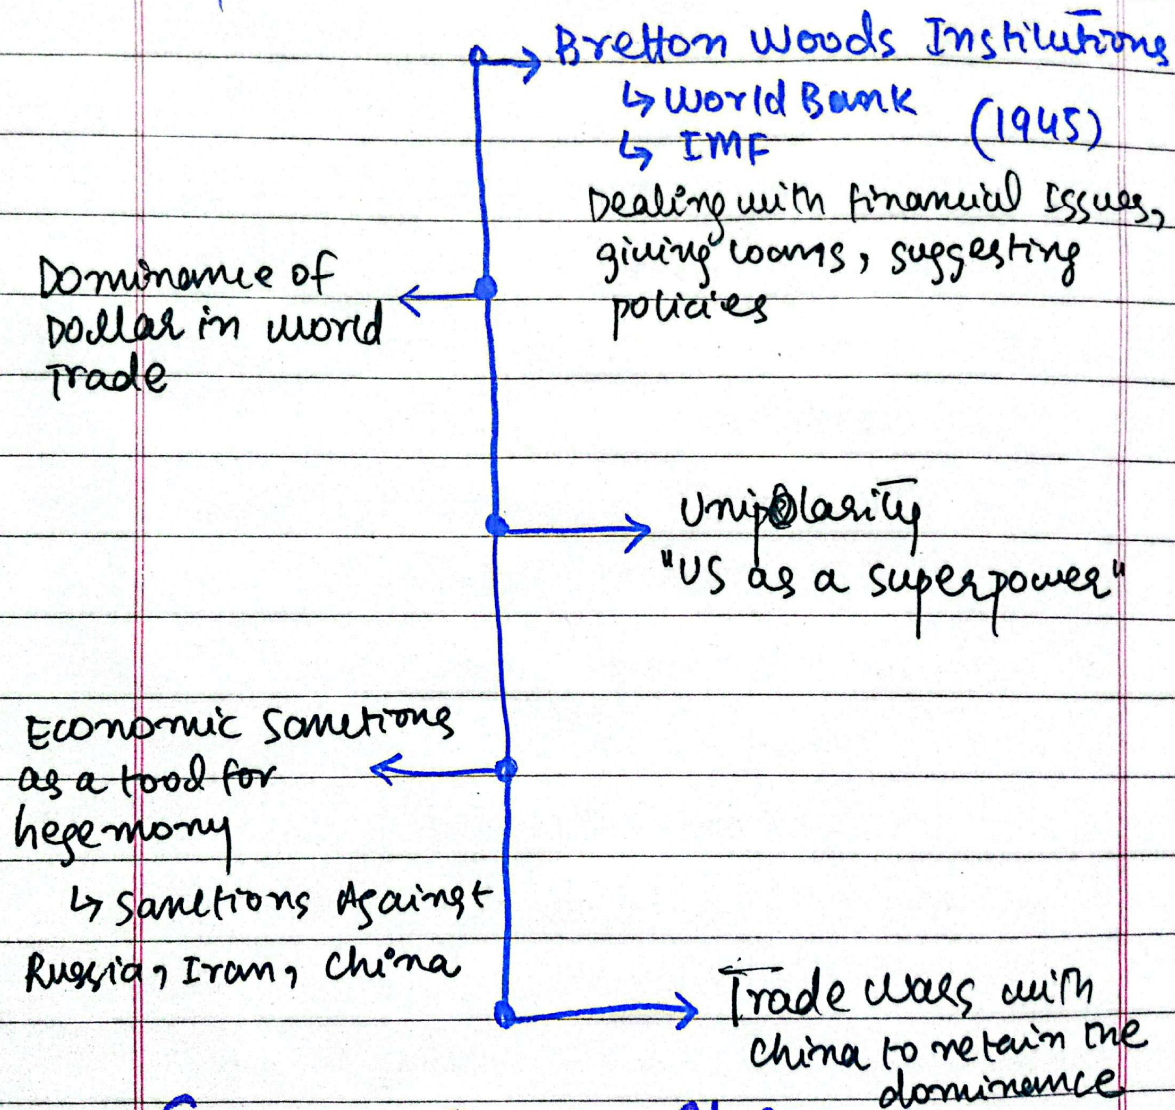 Bretton Woods Institutions
↳ World Bank
(1945)
↳ IMF
Dealing with financial Issues,
giving loans, suggesting
policies
Dominance of
Dollar in world
Trade
Unipolarity
"US as a superpower"
Economic Sanctions
as a tood for
hegemony
↳ Sanctions Against
Russia, Iran, China
Trade Wars with
China to retain the
dominance